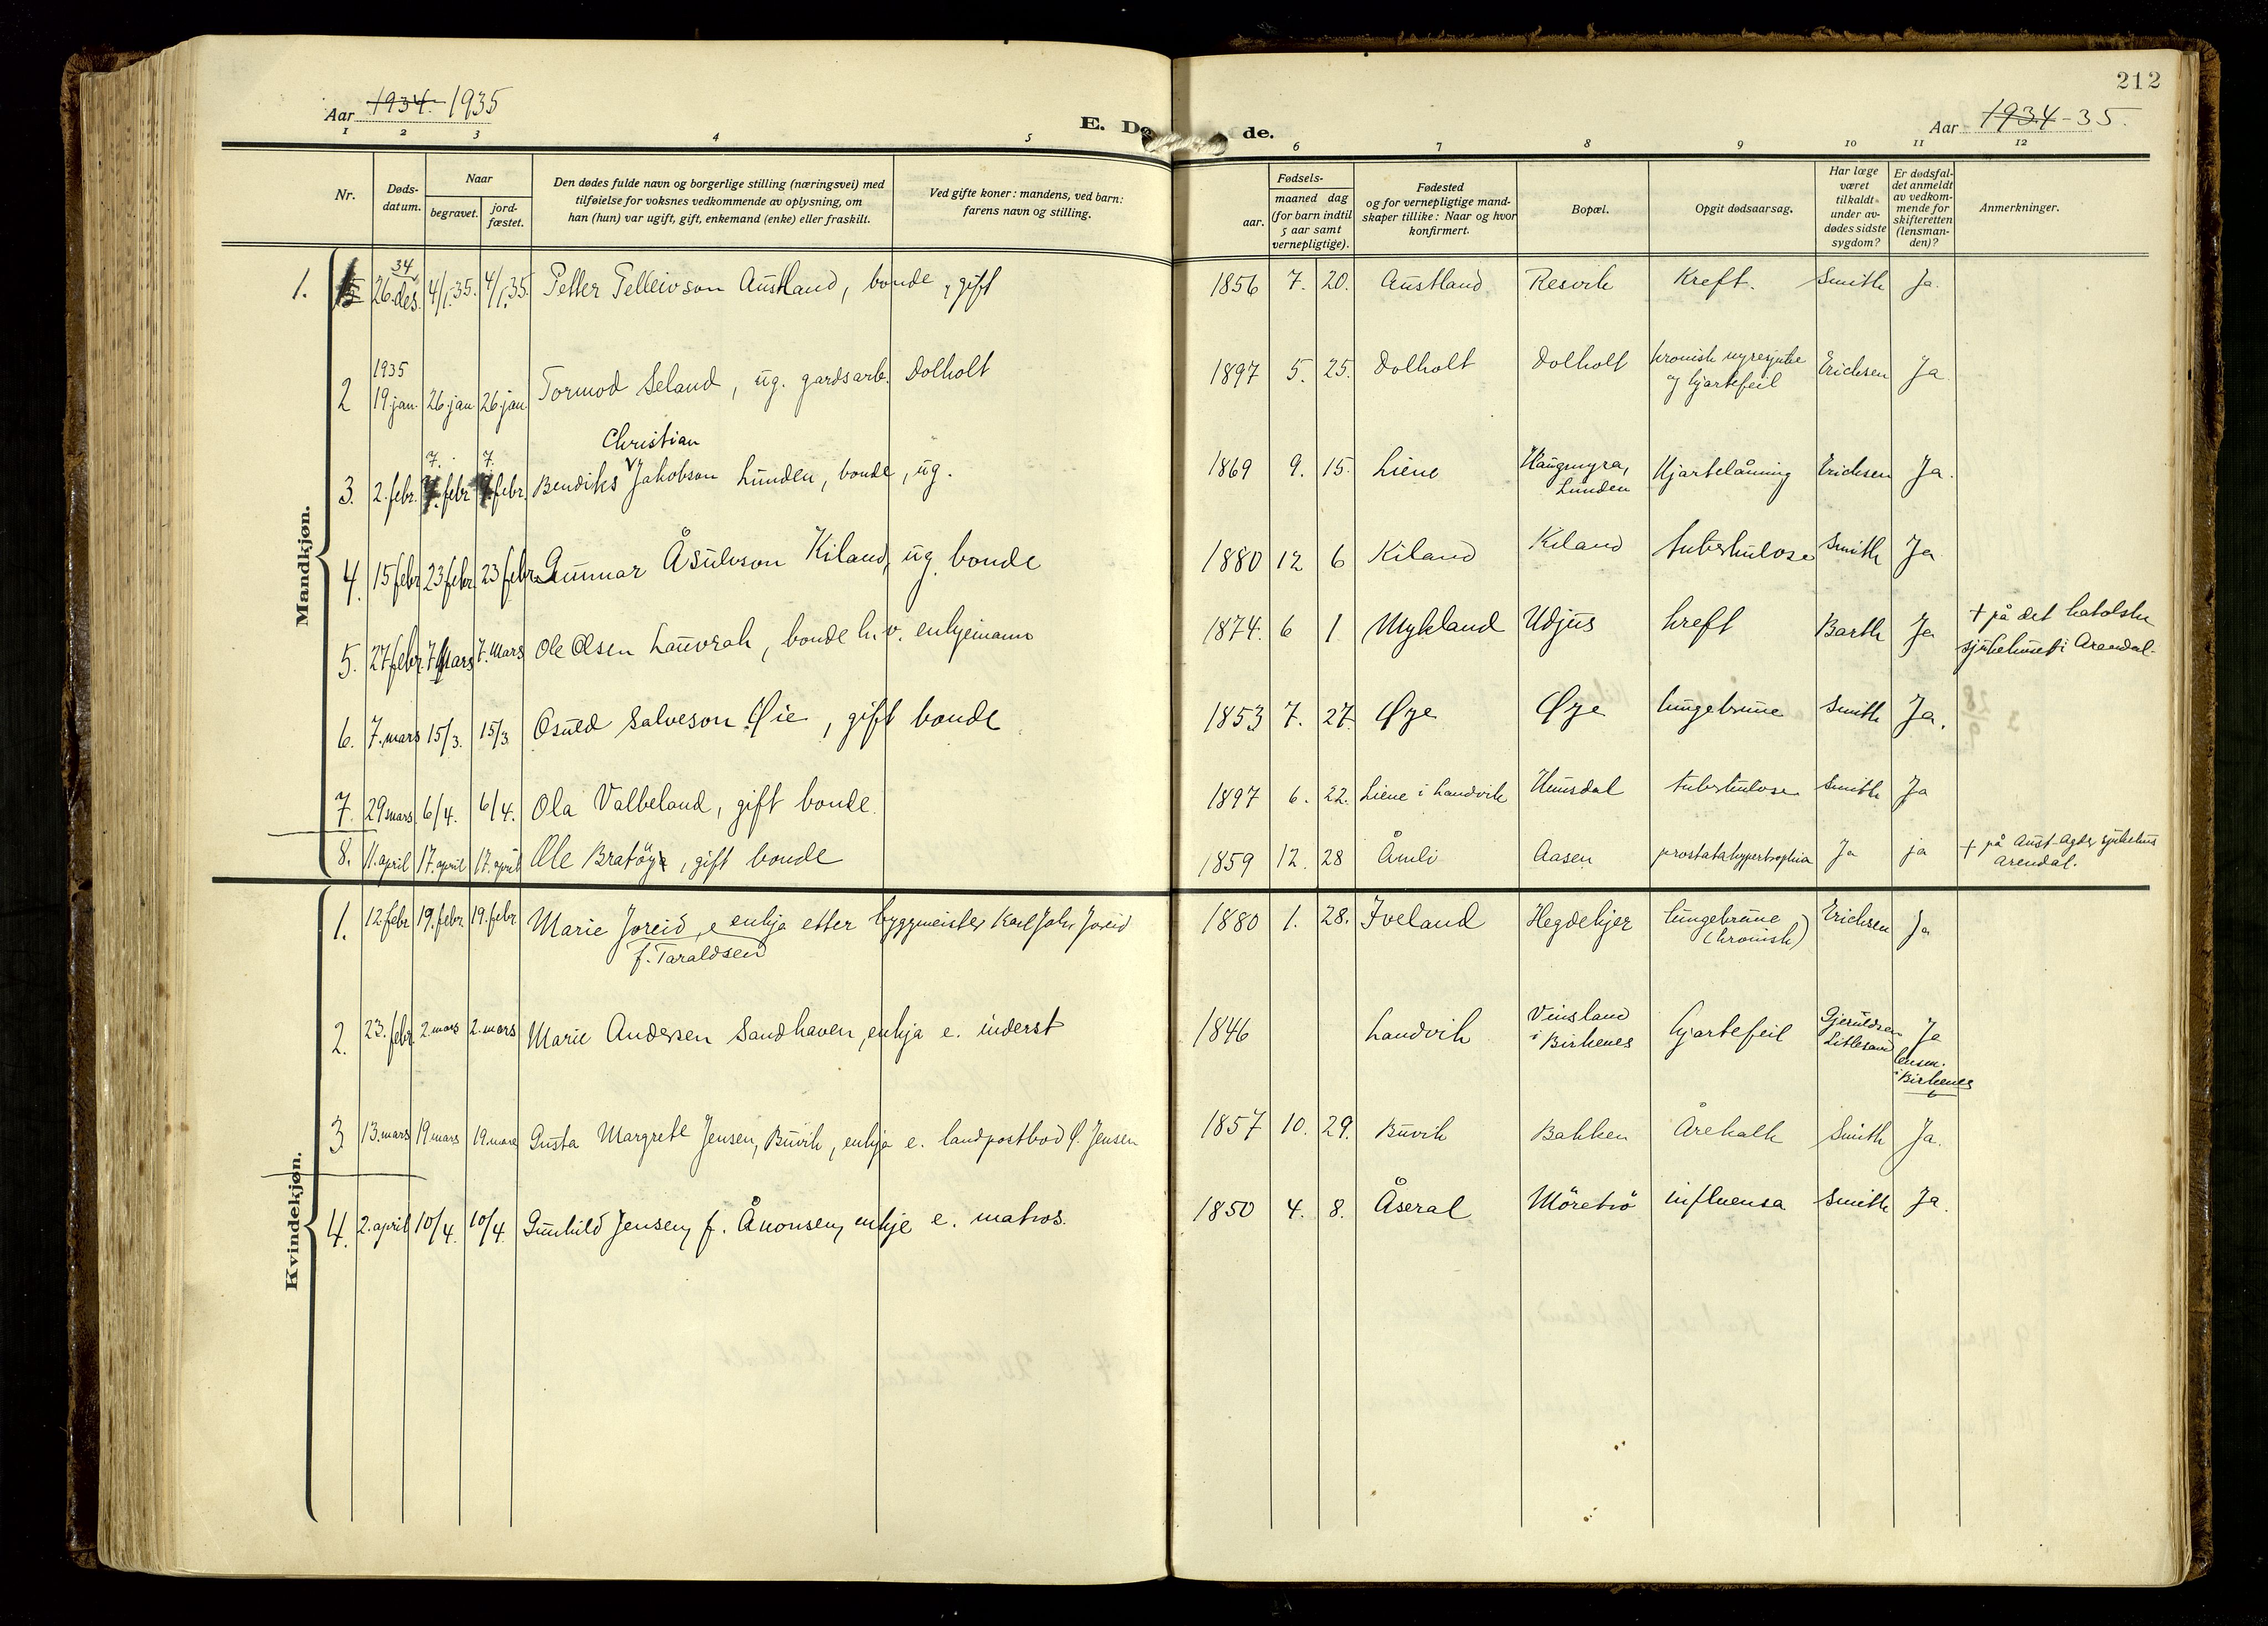 212
Aar 1934. 1935
E. De de.
Aar 1934-35.
1 2 3 4 5 6 7 8 9 10 11 12
Nr.
Døds-
datum.
Naar
begravet.
jord-
fæstet.
Den dødes fulde navn og borgerlige stilling (næringsvei) med
tilføielse for voksnes vedkommende av oplysning, om
han (hun) var ugift, gift, enkemand (enke) eller fraskilt.
Ved gifte koner: mandens, ved barn:
farens navn og stilling.
Fødsels-
aar.
maaned dag
(for barn indtil
5 aar samt
vernepligtige).
Fødested
og for vernepligtige mand-
skaper tillike: Naar og hvor
konfirmert.
Bopæl.
Opgit dødsaarsag.
Har læge
været
tilkaldt
under av-
dødes sidste
sygdom?
Er dødsfal-
det anmeldt
av vedkom-
mende for
skifteretten
(lensman-
den)?
Anmerkninger.
Mandkjøn.
34
1. 26. des. 4/1.35. 4/1.35. Petter Telleivson Austland, bonde, gift 1856 7. 20. Austland Resvik Kreft. Smith Ja.
1935
2 19 jan. 26 jan 26 jan Tormod Seland, ug. gardsarb. Dolholt 1897 5. 25. Dolholt Dolholt kronisk nyresjuke
og hjartefeil Erichsen Ja
Christian
7. 7.
3. 2. febr. febr febr. Bendiks Jakobson Lunden, bonde, ug. 1869 9. 15. Liene Haugmyra,
Lunden Hjartelåming Erichsen Ja.
4. 15 febr 23 febr. 23 febr. Gunnar Åsulvson Kiland, ug. bonde 1880 12 6 Kiland Kiland tuberkulose Smith Ja
5. 27 febr. 7 Mars 7. Mars Ole Olsen Lauvrak, bonde h.v. enkjemann 1874. 6 1 Mykland Udjus kreft Barth Ja + på det katolske
sjukehuset i Arendal.
6. 7. mars 15/3. 15/3. Osuld Salveson Øie, gift bonde 1853 7. 27. Øye Øye lungebrune Smith Ja.
7. 29 mars. 6/4. 6/4. Ola Valbeland, gift bonde. 1897 6. 22. Liene i Landvik Humsdal tuberkulose Smith Ja
8. 11. april 17. april 17. april Ole Bratöya, gift bonde 1859 12. 28 Åmli Aasen prostatahypertrophia Ja ja + på Aust-Agder sjukehus
Arendal.
Kvindekjøn.
1. 12 febr 19. febr 19. febr. Marie Joreid, e enkja etter byggmeister Karl John Joreid 1880 1. 28. Iveland Hegdekjer lungebrune
(kronisk) Erichsen Ja
f. Taraldsen
2. 23. febr. 2. mars 2. mars Marie Andersen Sandhaven, enkja e. inderst 1846 Landvik Veinsland
i Birkenes hjartefeil Gjeruldsen
Lillesand Ja
lensm.
i Birkenes
3 13. mars 19 mars 19. mars Gusta Margrete Jensen, Buvik, enkja e. landpostbod Jensen 1857 10. 29. Buvik Bakken Årekalk Smith Ja.
4. 2. april 10/4. 10/4. Gunhild Jensen, f. Ånonsen, enkje e. matros. 1850 4. 8. Åseral Möretrö influensa Smith Ja.